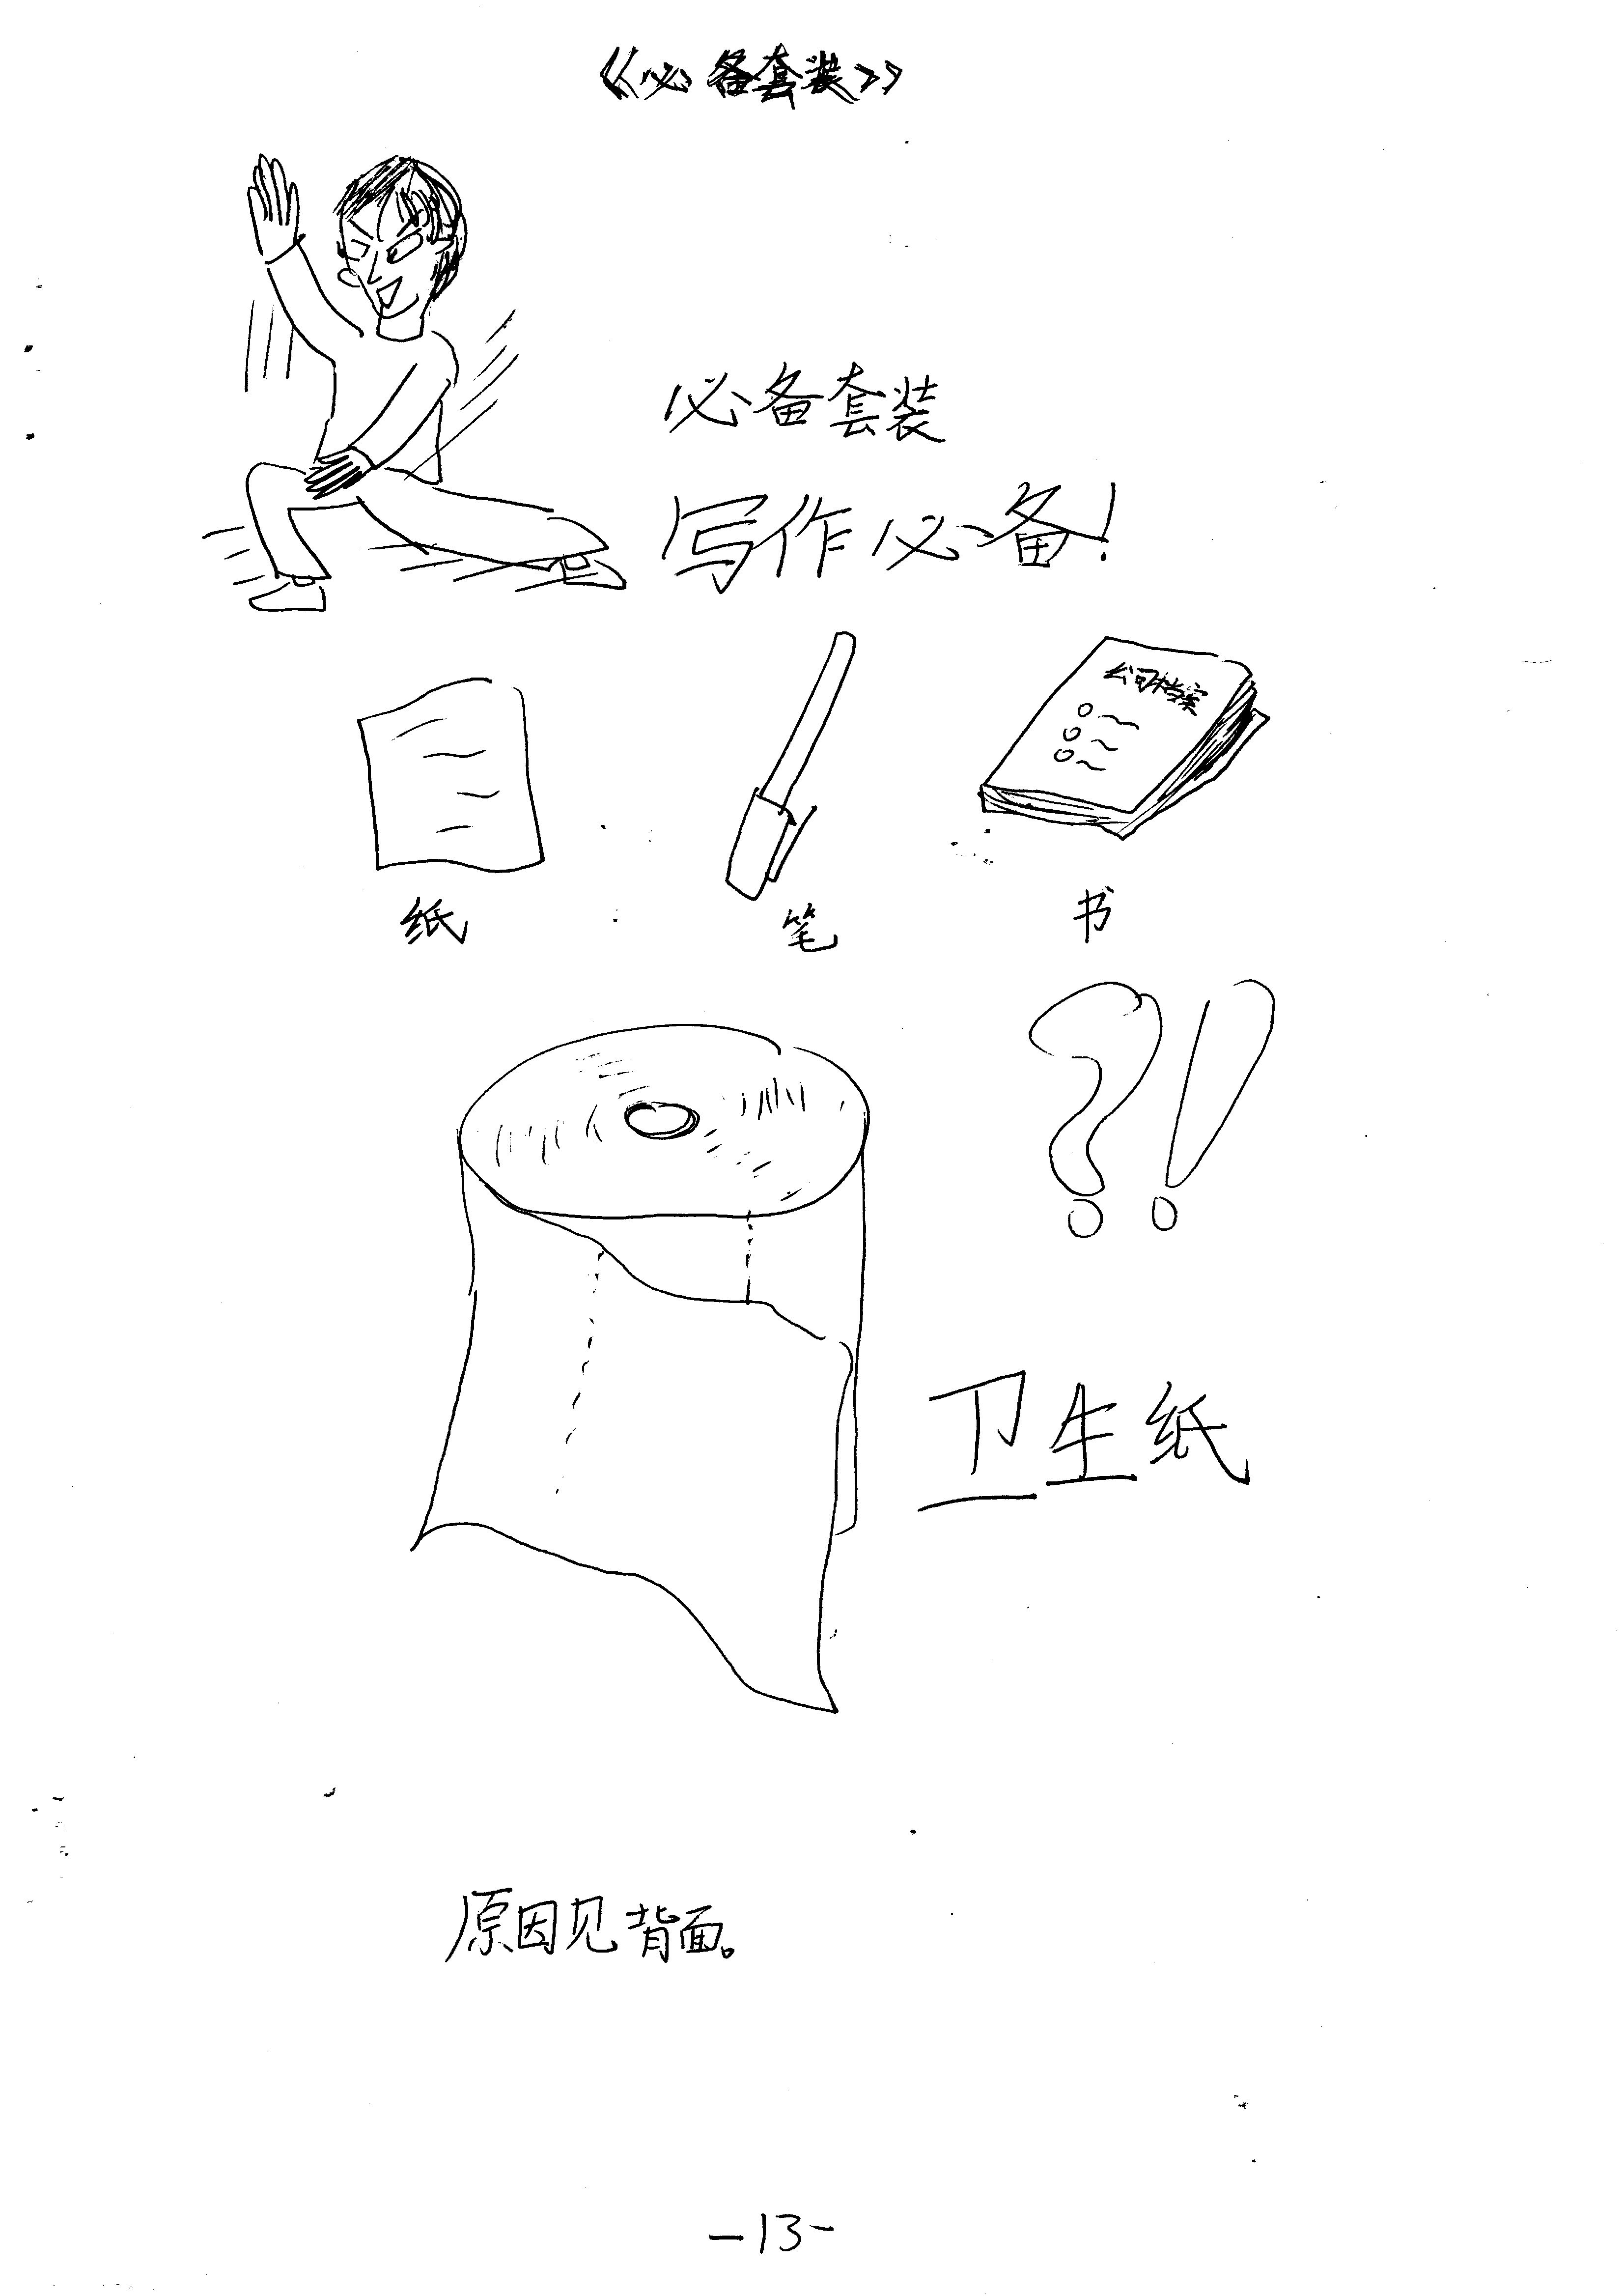 《必备套装》
必备套装
写作必备！
公司档案
纸
笔
书
？！
卫生纸
原因见背面。
-13-